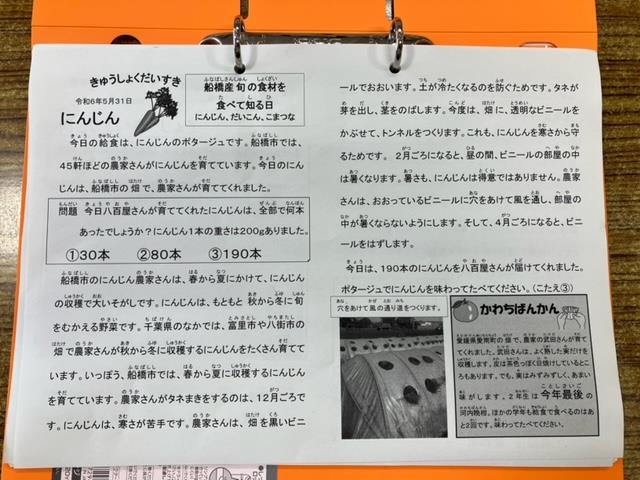 きゅうしょくだいすき
令和6年5月31日
にんじん
船橋産旬の食材を
食べて知る日
にんじん、だいこん、こまつな
今日の給食は、にんじんのポタージュです。船橋市では、
45軒ほどの農家さんがにんじんを育てています。今日のにん
じんは、船橋市の畑で、農家さんが育ててくれました。
問題 今日八百屋さんが育ててくれたにんじんは、全部で何本
あったでしょうか？にんじん1本の重さは200gありました。
①30本 ②80本 ③190本
船橋市のにんじん農家さんは、春から夏にかけて、にんじん
の収穫で大いそがしです。にんじんは、もともと秋から冬に旬
をむかえる野菜です。千葉県のなかでは、富里市や八街市の
畑で農家さんが秋から冬に収穫するにんじんをたくさん育てて
います。いっぽう、船橋市では、春から夏に収穫するにんじん
を育てています。農家さんがタネまきをするのは、12月ごろで
す。にんじんは、寒さが苦手です。農家さんは、畑を黒いビニ
ールでおおいます。土が冷たくなるのを防ぐためです。タネが
芽を出し、茎をのばします。今度は、畑に、透明なビニールを
かぶせて、トンネルをつくります。これも、にんじんを寒さから守
るためです。 2月ごろになると、昼の間、ビニールの部屋の中
は暑くなります。暑さも、にんじんは得意ではありません。農家
さんは、おおっているビニールに穴をあけて風を通し、部屋の
中が暑くならないようにします。そして、4月ごろになると、ビニ
ールをはずします。
今日は、190本のにんじんを八百屋さんが届けてくれました。
ポタージュでにんじんを味わってたべてください。（こたえ③）
穴をあけて風の通り道をつくります。
かわちばんかん
愛媛県愛南町の畑で、農家の武田さんが育
ててくれました。武田さんは、よく熟した実だけを
収穫します。皮は茶色っぽく日焼けしているところ
もあります。でも、実はみずみずしく、あまい
味がします。2年生は今年最後の
河内晩柑。ほかの学年も給食で食べるのはあ
と2回です。味わってたべてください。